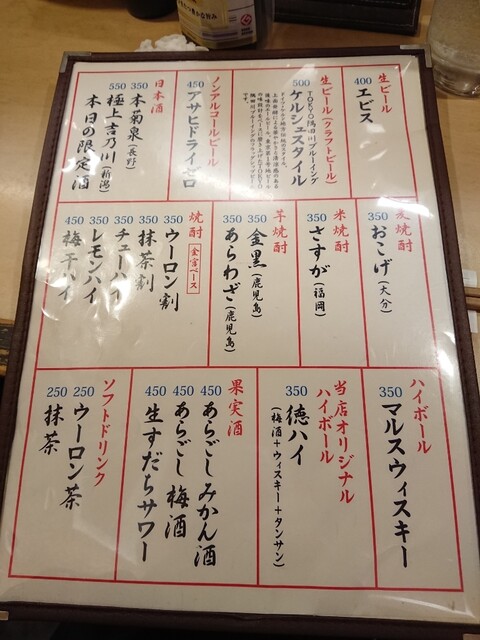 生ビール
400
エビス
生ビール(クラフトビール)
500
TOKYO隅田川ブルーイング
ケルシュスタイル
ノンアルコールビール
450
アサヒドライゼロ
日本酒
350
本菊泉(長野)
550
極上吉乃川(新潟)
本日の限定酒
麦焼酎
350
おこげ(大分)
米焼酎
350
さすが(福岡)
芋焼酎
350
金黒(鹿児島)
350
あらわざ(鹿児島)
焼酎
金宮ベース
350
ウーロン割
350
抹茶割
350
チューハイ
350
レモンハイ
450
梅干ハイ
ハイボール
350
マルスウィスキー
当店オリジナル
ハイボール
350
徳ハイ
(梅酒+ウィスキー+タンサン)
果実酒
450
あらごしみかん酒
450
あらごし梅酒
450
生すだちサワー
ソフトドリンク
250
ウーロン茶
250
抹茶